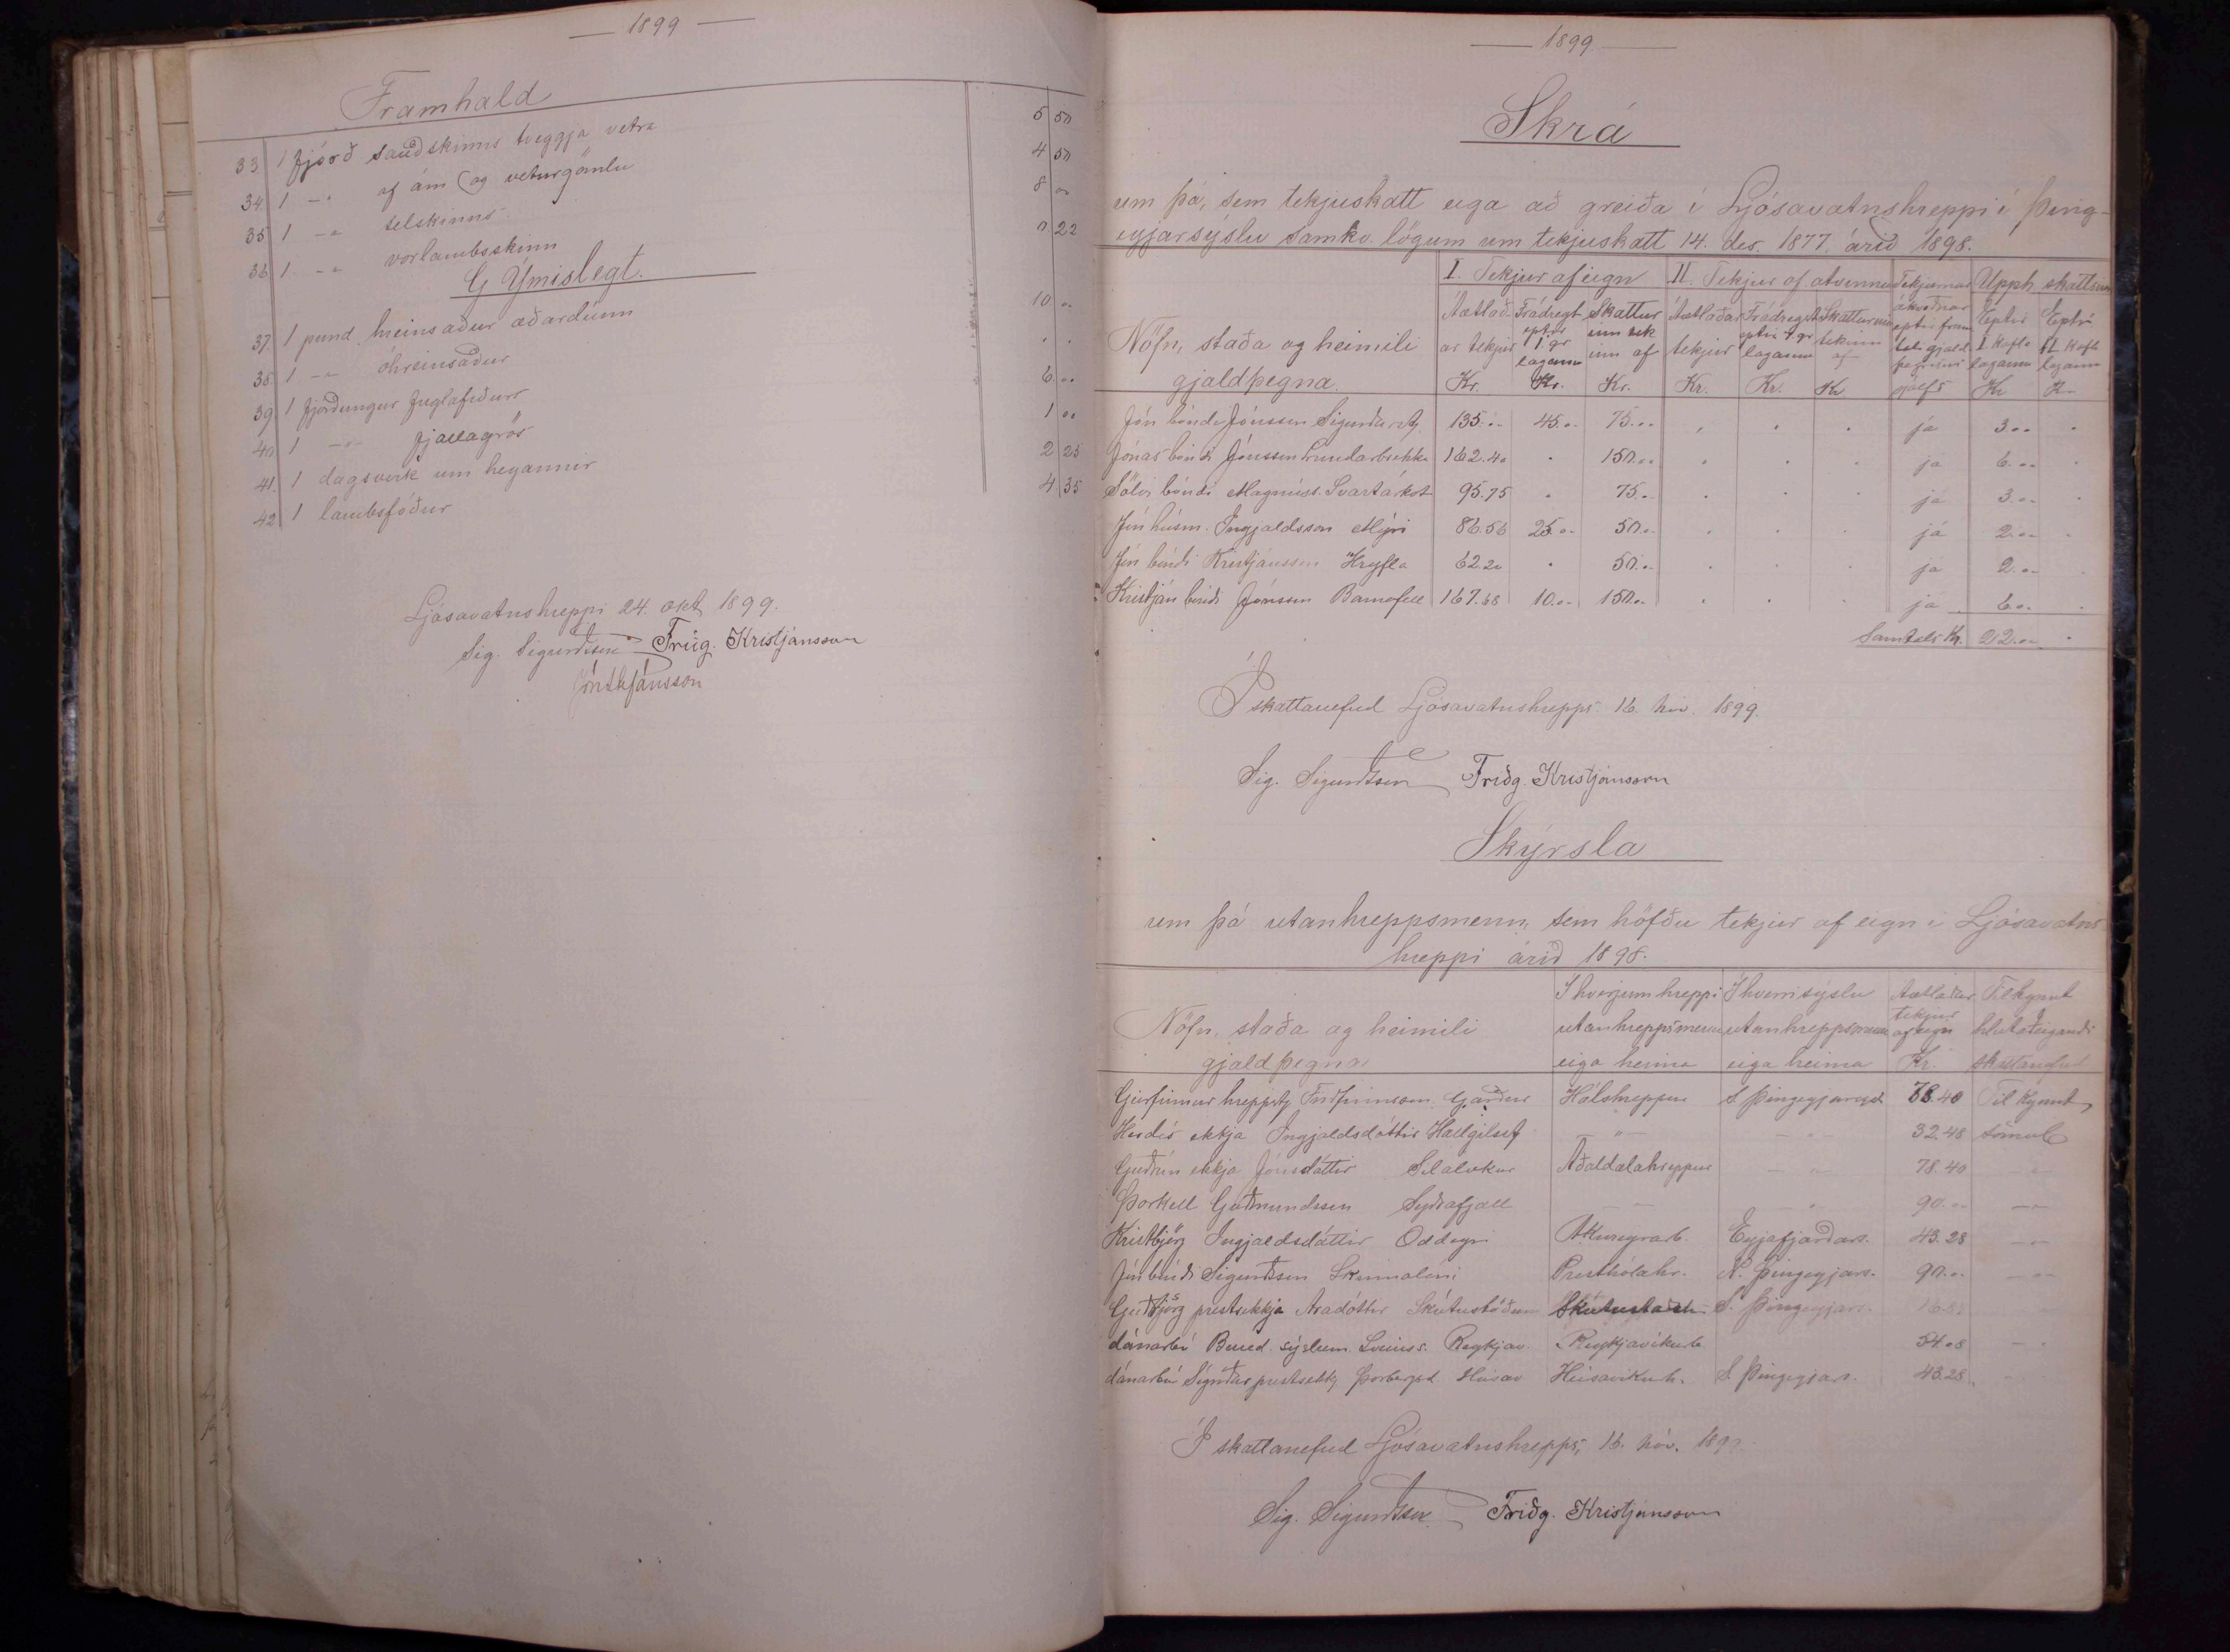 — 1899 —
Framhald
33. 1 fjórð sauðskinns tveggja vetra 5 50
34. 1 -"- af ám og veturgömlu 4 50
35 1 -"- selskinns 8 "
36 1. -"- vorlambsskinn 0 22
G Ýmislegt.
37. 1 pund hreinsaður æðardúnn 10 "
38. 1 -"- óhreinsaður " "
39. 1 fjórðungur fuglafiðurs 6 "
40 1 -"- fjallagrös 1 "
41. 1 dagsverk um heyannir 2 25
42 1 lambsfóður 4 35
Ljósavatnshreppi 24. okt 1899.
Sig. Sigurðsson Friðg. Kristjánsson
— 1899 —
Skrá
um þá, sem tekjuskatt eiga að greiða í Ljósavatnshreppi í Þing-
eyjarsýslu samkv. lögum um tekjuskatt 14. des. 1877. árið 1898.
I. Tekjur af eign II. Tekjur af atvinnu Tekjurnar Upph. skattsins
Nöfn, staða og heimili gjaldþegna.
Áætlaðar tekjur Kr. Frádregt eptir 1. gr laganna Kr. Skatturinn tekinn af Kr.
Áætlaðar tekjur Kr. Frádregt eptir 7 gr laganna Kr. Skatturinn tekinn af Kr
ákveðnar eptir fram tali gjald þegnsins sjálfs Eptir I. kafla laganna Kr Eptir II. kafla laganna Kr
Jón bóndi Jónsson Sigurðarst. 135." 45." 75." " " " já 3." "
Jónas bóndi Jónsson Lundarbrekku 162.40 " 150." " " " já 6." "
Sölvi bóndi Magnúss. Svartárkot 95.75 " 75." " " " já 3." "
Jón húsm. Ingjaldsson Mýri 86.56 25." 50." " " " já 2." "
Jón bóndi Kristjánsson Hryfla 62.20 " 50." " " " já 2." "
Kristján bóndi Jónsson Barnafell 167.68 10." 150." " " " já 6." "
Samtals Kr. 22." "
Í skattanefnd Ljósavatnshrepps. 16. nóv. 1899.
Sig. Sigurðsson Friðg. Kristjánsson
Skýrsla
um þá utanhreppsmenn, sem höfðu tekjur af eign í Ljósavatns
hreppi árið 1898.
Nöfn, staða og heimili gjaldþegna
Í hverjum hreppi utanhreppsmenn eiga heima
Í hverri sýslu utanhreppsmenn eiga heima
Áætlaðar tekjur af eign Kr.
Tilkynnt hlutaðeigandi skattanefnd
Geirfinnur hreppstj Friðfinnsson Garður Hálshreppur S. Þingeyjarsýsl 78.40 Tilkynnt
Herdís ekkja Ingjaldsdóttir Hallgilsst. -"- -"- 32.48 sömul
Guðrún ekkja Jónsdóttir Aðaldælahreppur -"- 78.40 -"-
Þorkell Guðmundsson Syðrafjall -"- -"- 90." -"-
Kristbjörg Ingjaldsdóttir Oddeyri Akureyrarb. Eyjafjarðars. 43.28 -"-
Jón bóndi Sigurðsson Skinnalóni Presthólahr. N. Þingeyjars. 90." -"-
Guðbjörg prestsekkja Aradóttir Skútustöðum Skútustaðah. S. Þingeyjars.
dánarbú Bened. sýslum. Sveinss. Reykjav. Reykjavíkurb 54.08 -"-
dánarbú prestsekkj Þorbergsd. Húsav Húsavíkurh. S. Þingeyjars. 43.28 "
Í skattanefnd Ljósavatnshrepps, 16. nóv. 1899
Sig. Sigurðsson Friðg. Kristjánsson